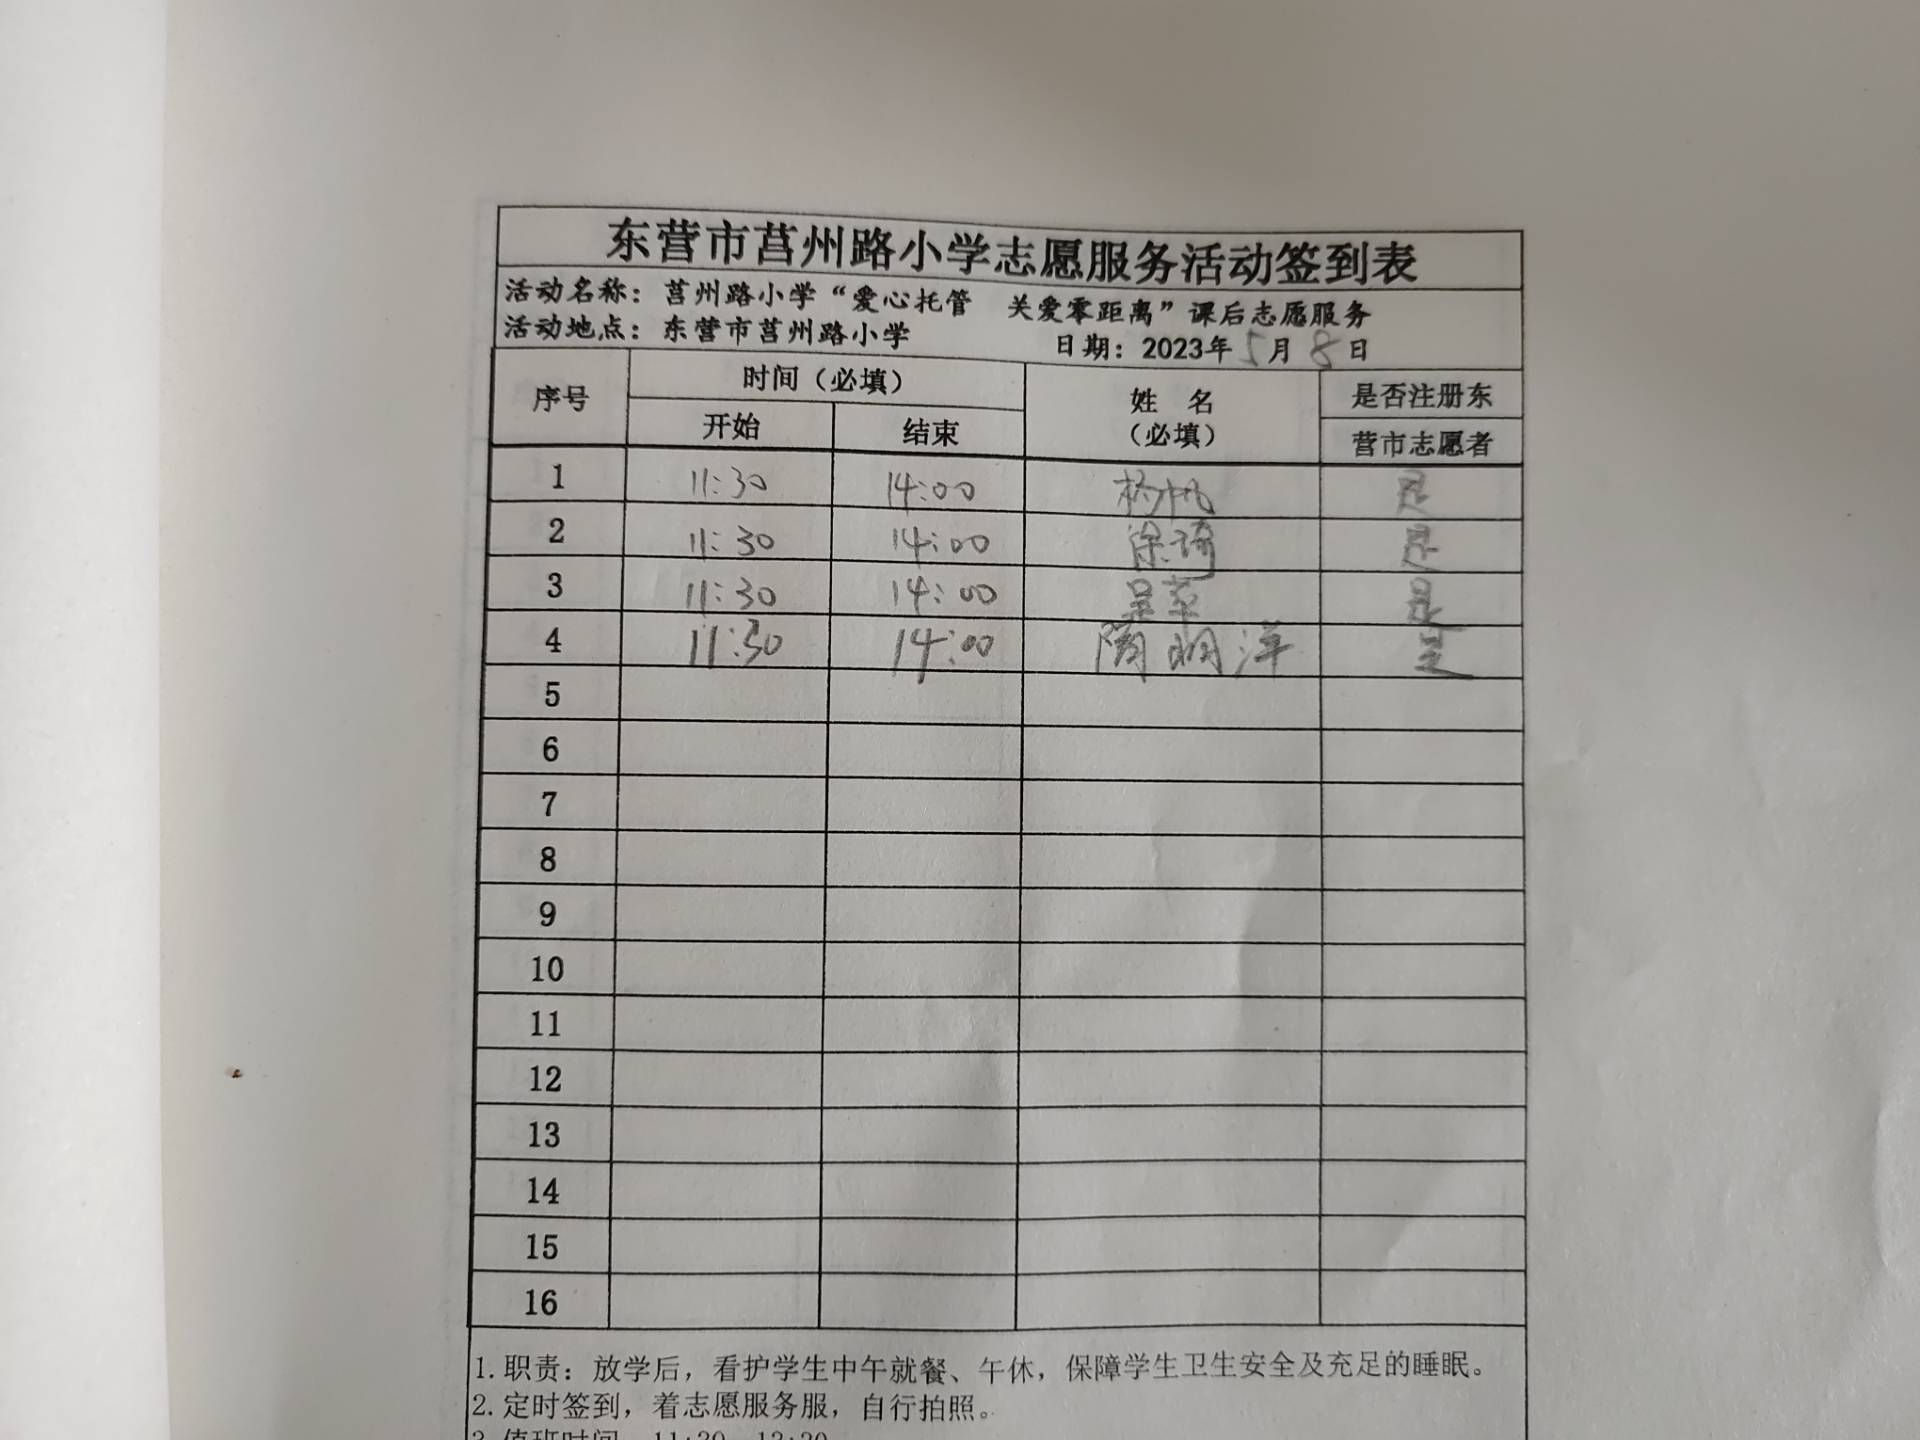 东营市莒州路小学志愿服务活动签到表
活动名称：莒州路小学“爱心托管 关爱零距离”课后志愿服务
活动地点：东营市莒州路小学 日期：2023年5月8日
序号 时间（必填） 姓 名（必填） 是否注册东营市志愿者
开始 结束
1 11:30 14:00 杨帆 是
2 11:30 14:00 徐琦 是
3 11:30 14:00 吴苹 是
4 11:30 14:00 隋明洋 是
5
6
7
8
9
10
11
12
13
14
15
16
1.职责：放学后，看护学生中午就餐、午休，保障学生卫生安全及充足的睡眠。
2.定时签到，着志愿服务服，自行拍照。